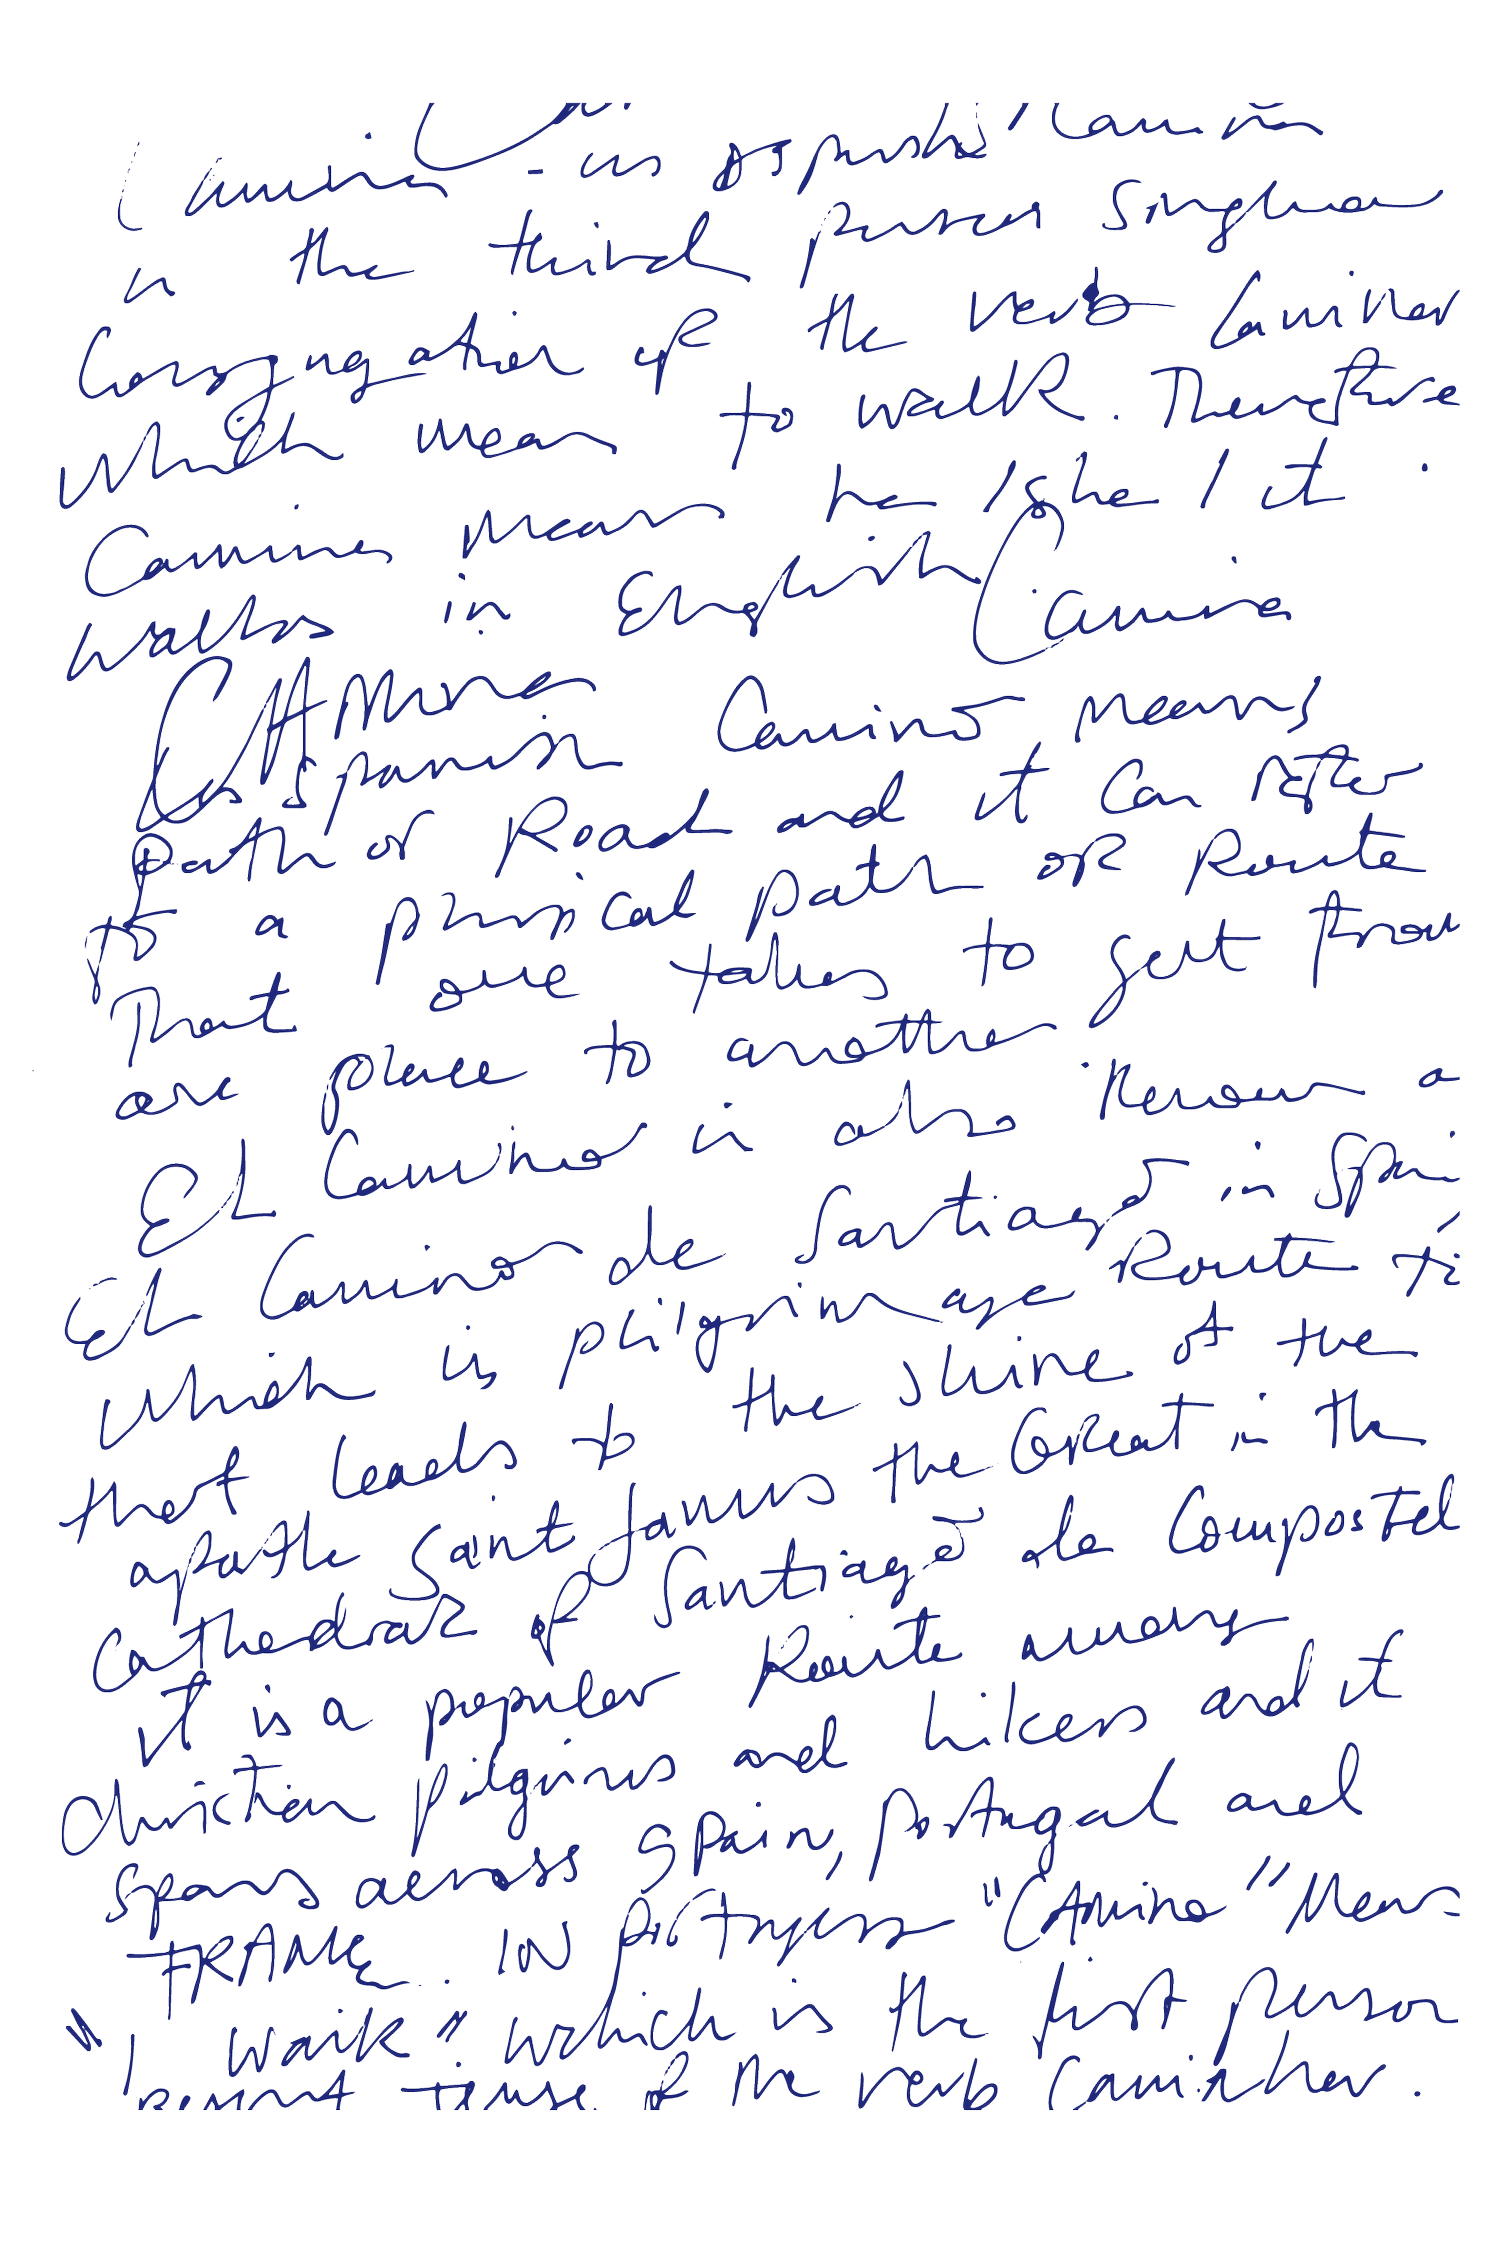 Camina - in Spanish Camina
in the third person singular
Conjugation of the verb Caminar
which mean to walk. Therefore
Camina means he / she / it
walks in English Camina
CAMino
In Spanish Camino means
path or Road and it can refer
to a physical path or Route
That one takes to get from
one place to another
El Camino is also known a
El Camino de Santiago in Spai
which is philgrimage Route
that leads to the shine of the
apostle Saint James the Great in the
Cathedral of Santiago de Compostel
it is a populer Route among
Christian pilgrims and hikers and it
spans across Spain, Portugal and
FRANCE. IN Portugese "CAMino" Means
"I walk" which is the first person
present tense of the verb Caminhar.